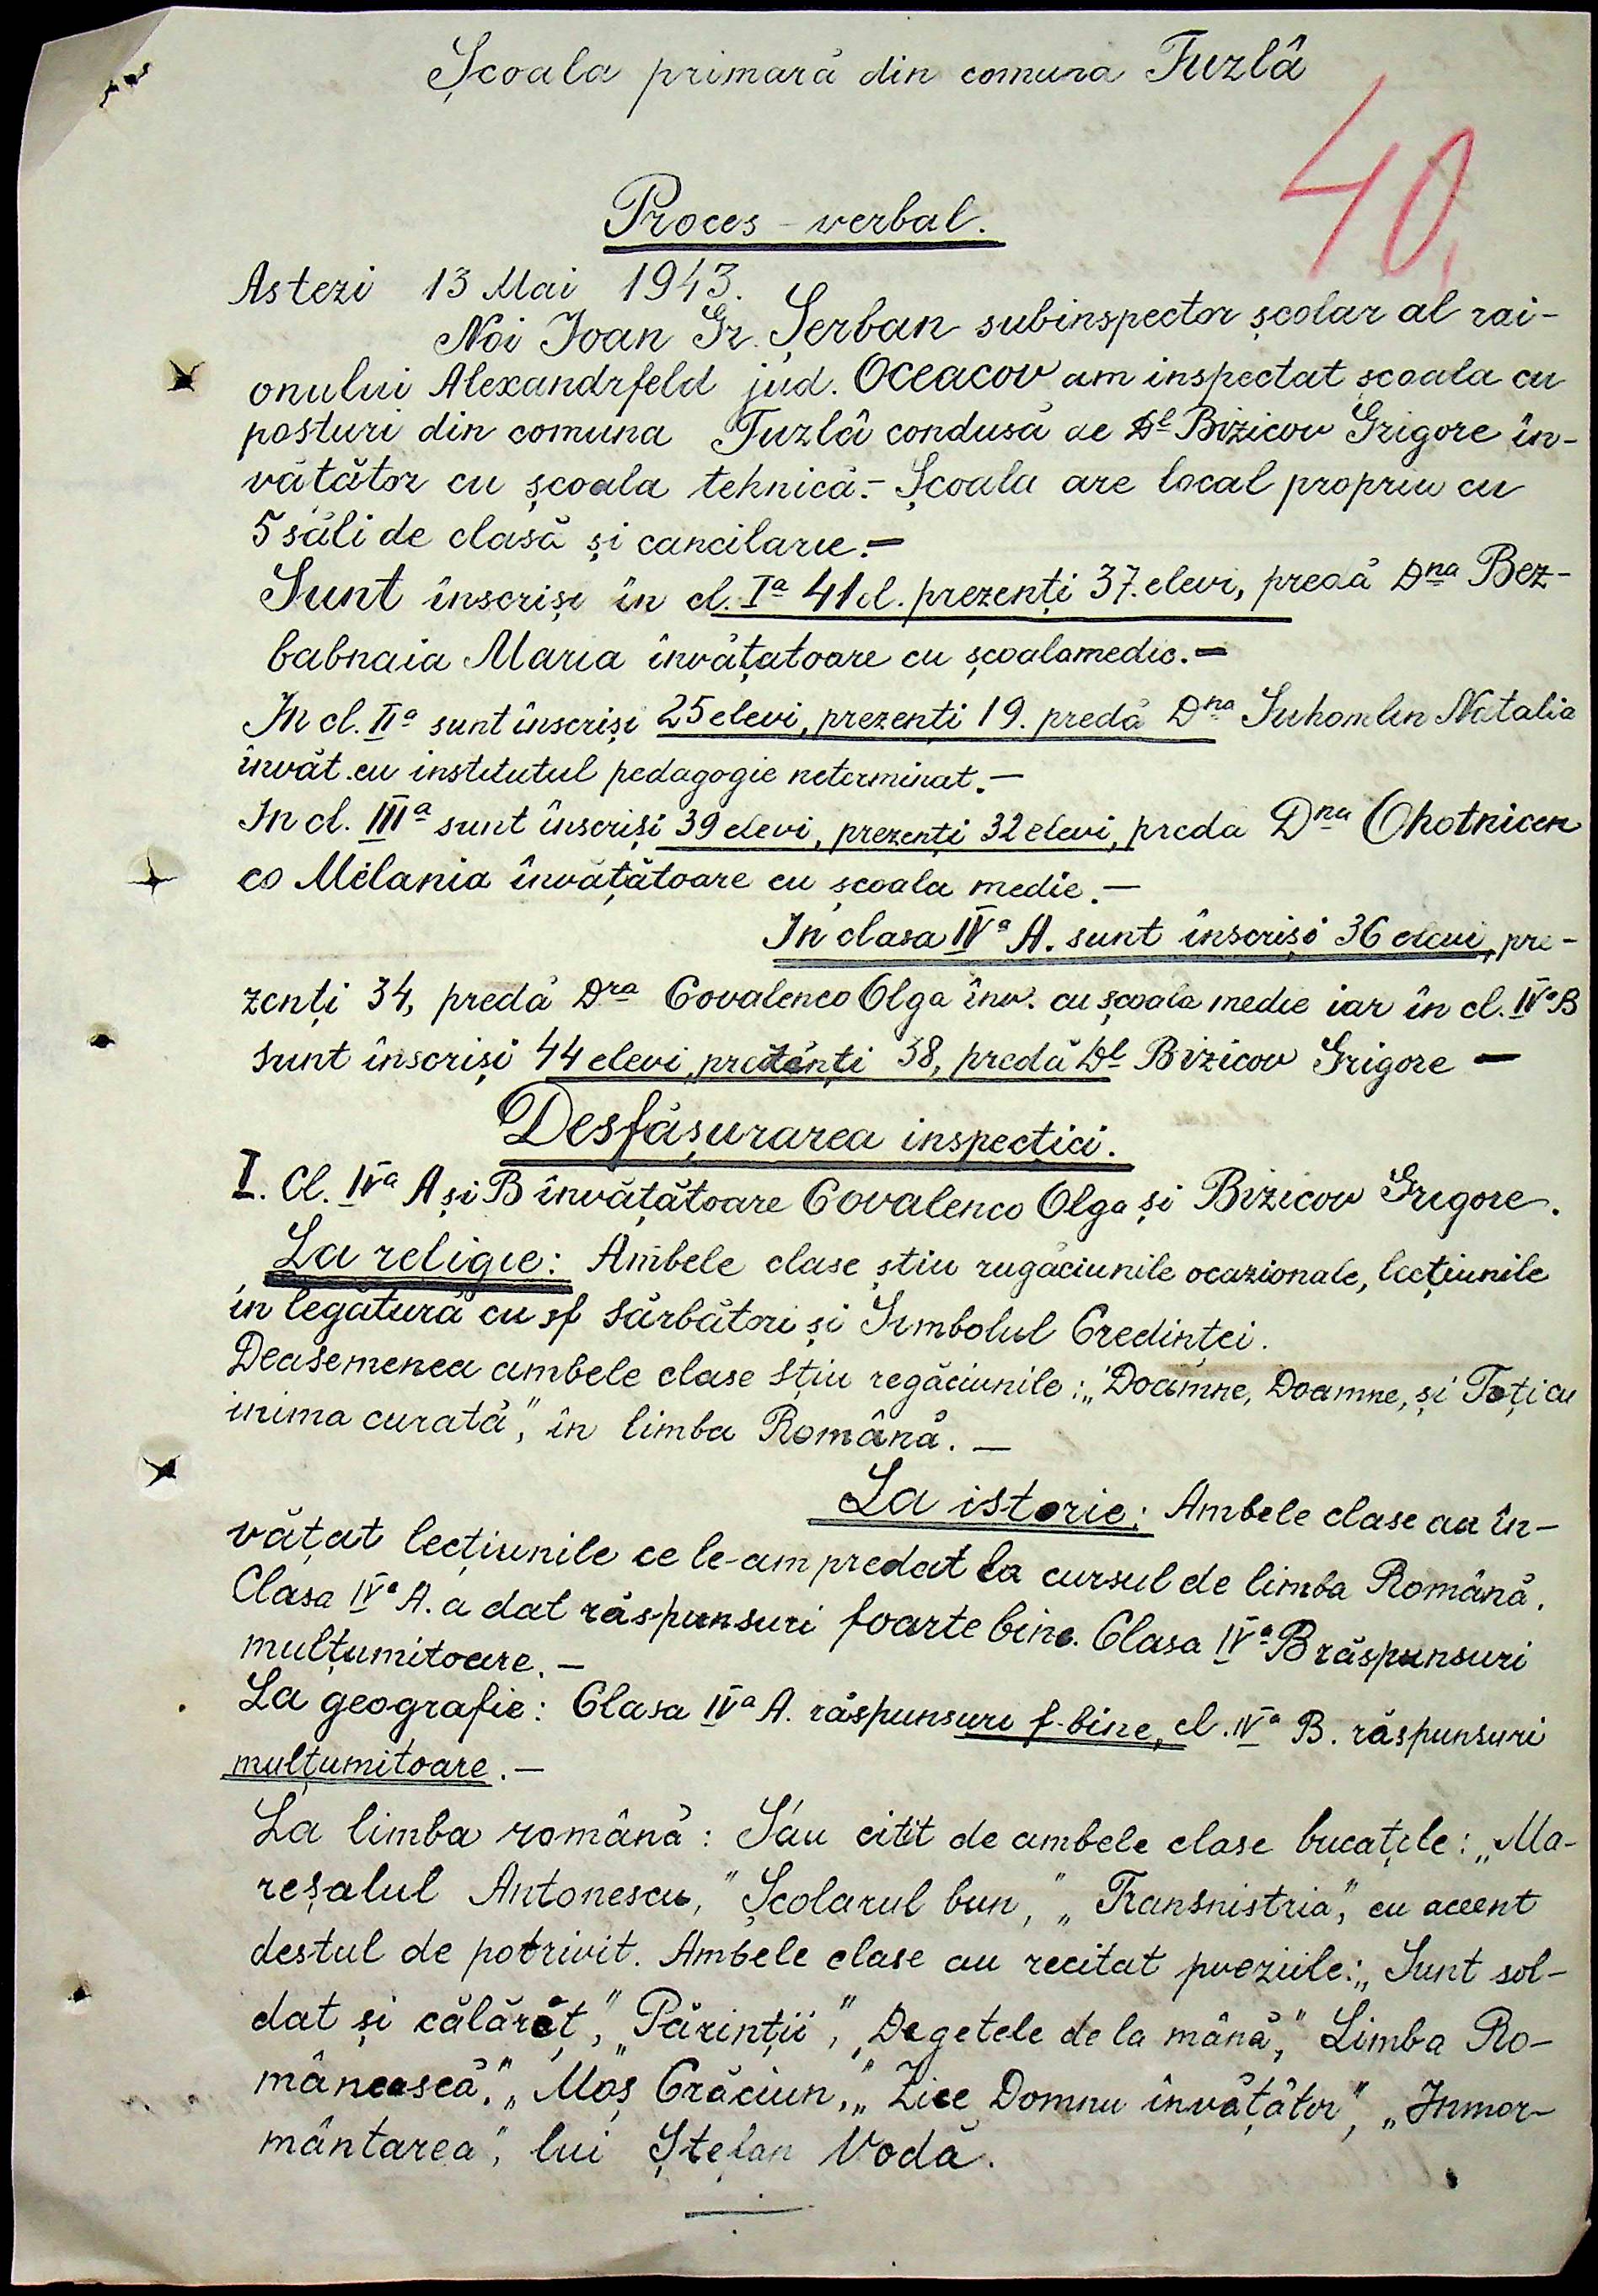 Școala primară din comuna Tuzlâ
40,
Proces-verbal.
Astezi 13 Mai 1943.
Noi Ioan Gr. Șerban subinspector școlar al rai-
onului Alexandrfeld jud. Oceacov am inspectat școala cu
posturi din comuna Tuzlâ condusă de Dl Bizicov Grigore în-
vățător cu școala tehnică.- Școala are local propriu cu
5 săli de clasă și cancilarie.-
Sunt înscriși în cl. Iª 41 el. prezenți 37. elevi, predă Dna Bez-
babnaia Maria învățatoare cu școala medie.-
In cl. IIª sunt înscriși 25 elevi, prezenți 19. predă Dna Suhomlin Natalia
învăt. cu institutul pedagogie neterminat.-
In cl. IIIª sunt înscriși 39 elevi, prezenți 32 elevi, preda Dna Ohotnicen
co Melania învățătoare cu școala medie.-
In clasa IVª A. sunt înscriși 36 elevi, pre-
zenți 34, predă Dra Covalenco Olga înv. cu școala medie iar în cl. IVª B
sunt înscriși 44 elevi, prezenți 38, predă Dl Bizicov Grigore -
Desfășurarea inspecției.
I. Cl. IVª A și B învățătoare Covalenco Olga și Bizicov Grigore.
La religie: Ambele clase știu rugăciunile ocazionale, lecțiunile
in legătură cu sf sărbători și Simbolul Credinței.
Deasemenea ambele clase știu regăciunile: „Doamne, Doamne, și Toți cu
inima curată," în limba Română.-
La istorie: Ambele clase au în-
vățat lecțiunile ce le-am predat la cursul de limba Română.
Clasa IVª A. a dat răspunsuri foarte bine. Clasa IVª B răspunsuri
mulțumitoare.-
La geografie: Clasa IVª A. răspunsuri f-bine, cl. IVª B. răspunsuri
mulțumitoare.-
La limba română: S'au citit de ambele clase bucațile: „Ma-
reșalul Antonescu," Școlarul bun," „Transnistria", cu accent
destul de potrivit. Ambele clase au recitat poeziile: „Sunt sol-
dat și călăreț," „Părinții", „Degetele de la mână," Limba Ro-
mânească," „Moș Crăciun," „Zice Domnu învățător", „Inmor-
mântarea", lui Ștefan Vodă.